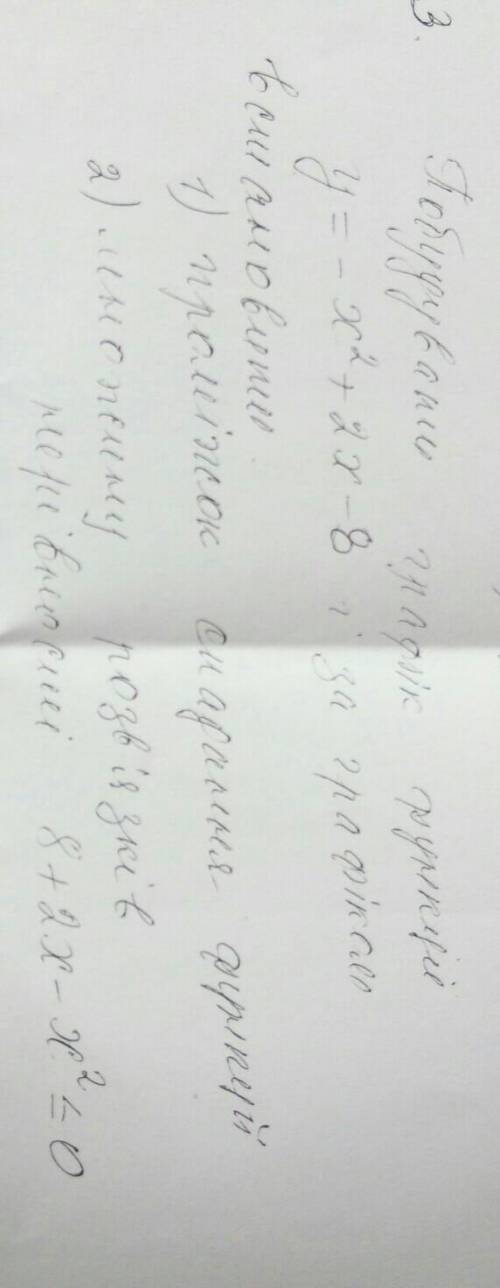 3.
Побудувати графік функції
y = - x² + 2x - 8 і за графіком
встановити
1) проміжок спадання функції
2) множину розв'язків
нерівності 8 + 2x - x² ≤ 0